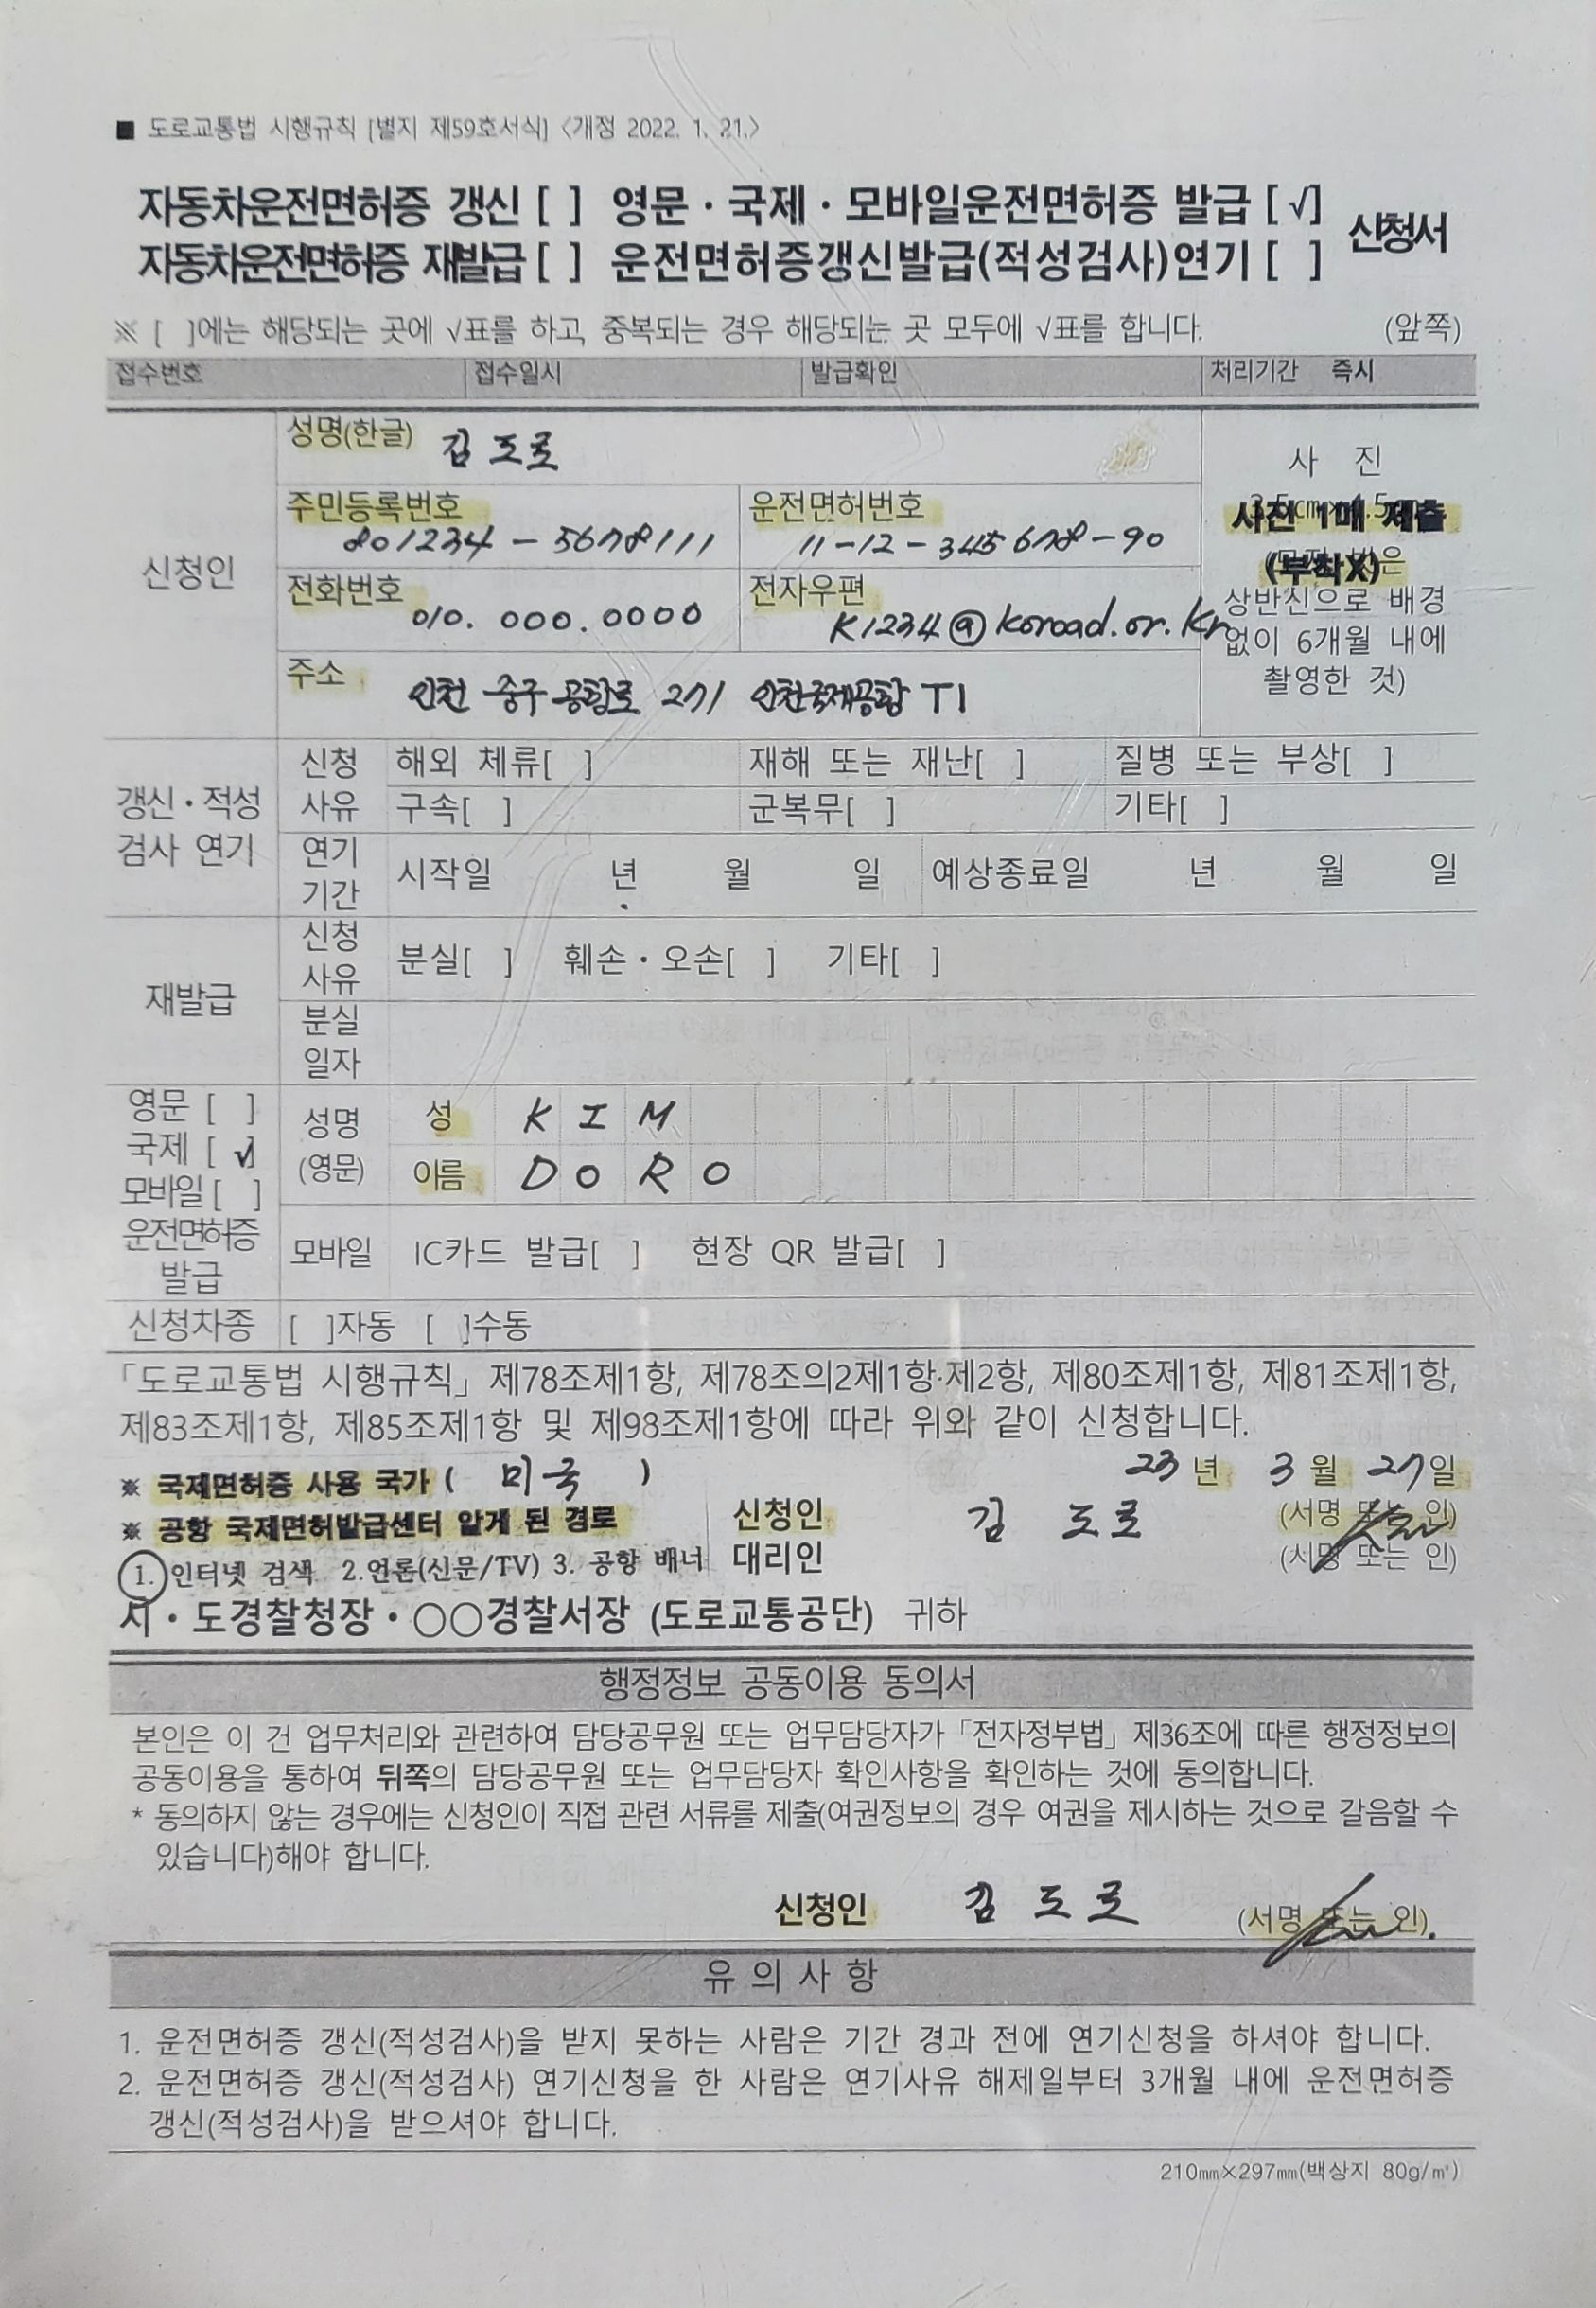 ■ 도로교통법 시행규칙 [별지 제59호서식] <개정 2022. 1. 21.>
자동차운전면허증 갱신 [ ] 영문·국제·모바일운전면허증 발급 [√]
자동차운전면허증 재발급 [ ] 운전면허증갱신발급(적성검사)연기 [ ]
신청서
※ [ ]에는 해당되는 곳에 √표를 하고, 중복되는 경우 해당되는 곳 모두에 √표를 합니다. (앞쪽)
접수번호 접수일시 발급확인 처리기간 즉시
신청인
성명(한글) 김도로
주민등록번호 801234-5678111
운전면허번호 11-12-345678-90
전화번호 010. 000. 0000
전자우편 K1234@koroad.or.kr
주소 인천 중구 공항로 271 인천국제공항 T1
사 진
사진 1매 제출
(부착X)
상반신으로 배경
없이 6개월 내에
촬영한 것)
갱신·적성
검사 연기
신청
사유
해외 체류[ ] 재해 또는 재난[ ] 질병 또는 부상[ ]
구속[ ] 군복무[ ] 기타[ ]
연기
기간
시작일 년 월 일 예상종료일 년 월 일
재발급
신청
사유
분실[ ] 훼손·오손[ ] 기타[ ]
분실
일자
영문 [ ]
국제 [√]
모바일[ ]
운전면허증
발급
성명
(영문)
성 KIM
이름 DORO
모바일 IC카드 발급[ ] 현장 QR 발급[ ]
신청차종 [ ]자동 [ ]수동
「도로교통법 시행규칙」 제78조제1항, 제78조의2제1항·제2항, 제80조제1항, 제81조제1항,
제83조제1항, 제85조제1항 및 제98조제1항에 따라 위와 같이 신청합니다.
※ 국제면허증 사용 국가 ( 미국 )
23년 3월 27일
※ 공항 국제면허발급센터 알게 된 경로
신청인 김 도로 (서명 또는 인)
1. 인터넷 검색 2.언론(신문/TV) 3. 공항 배너
대리인 (서명 또는 인)
시·도경찰청장·○○경찰서장 (도로교통공단) 귀하
행정정보 공동이용 동의서
본인은 이 건 업무처리와 관련하여 담당공무원 또는 업무담당자가 「전자정부법」 제36조에 따른 행정정보의
공동이용을 통하여 뒤쪽의 담당공무원 또는 업무담당자 확인사항을 확인하는 것에 동의합니다.
* 동의하지 않는 경우에는 신청인이 직접 관련 서류를 제출(여권정보의 경우 여권을 제시하는 것으로 갈음할 수
있습니다)해야 합니다.
신청인 김 도로 (서명 또는 인)
유 의 사 항
1. 운전면허증 갱신(적성검사)을 받지 못하는 사람은 기간 경과 전에 연기신청을 하셔야 합니다.
2. 운전면허증 갱신(적성검사) 연기신청을 한 사람은 연기사유 해제일부터 3개월 내에 운전면허증
갱신(적성검사)을 받으셔야 합니다.
210㎜×297㎜(백상지 80g/㎡)